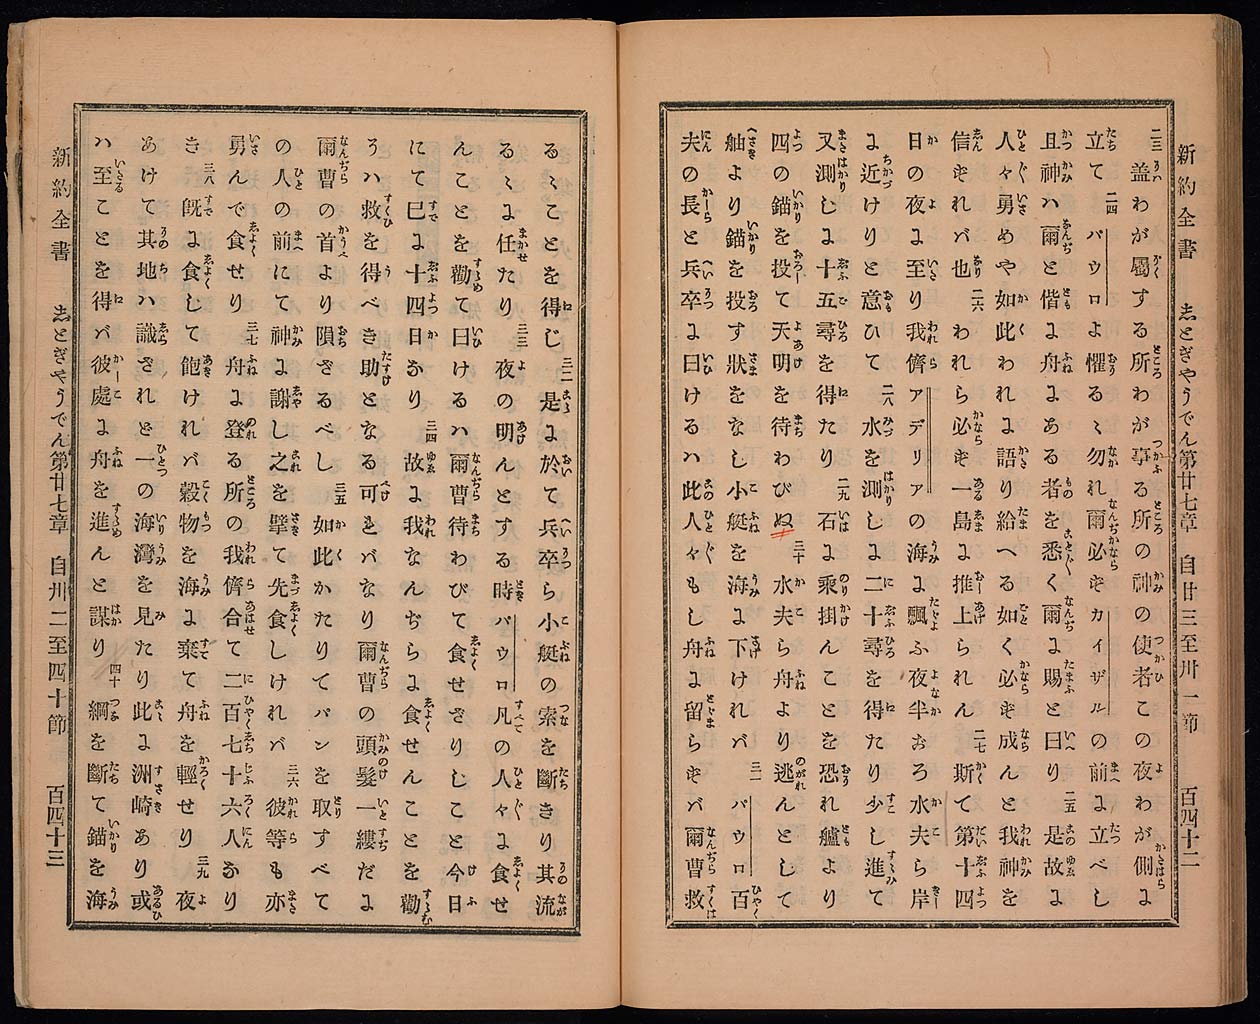 新約全書 志とぎやうでん第廿七章 自廿三至卅一節 百四十二
二三 蓋わが屬する所わが事る所の神の使者この夜わが側よ
立て 二四 パウロよ懼るゝ勿れ爾必ずカイザルの前よ立べし
且神ハ爾と偕よ舟よある者を悉く爾よ賜と曰り 二五 是故よ
人々勇めや如此われよ語り給へる如く必ず成んと我神を
信ずれバ也 二六 われら必ず一島よ推上られん 二七 斯て第十四
日の夜よ至り我儕アデリアの海よ飄ふ夜半おろ水夫ら岸
よ近けりと意ひて 二八 水を測しよ二十尋を得たり少し進て
又測しよ十五尋を得たり 二九 石よ乘掛んことを恐れ艫より
四の錨を投て天明を待わびぬ 三十 水夫ら舟より逃んとして
舳より錨を投す狀をなし小艇を海よ下けれバ 三一 パウロ百
夫の長と兵卒よ曰けるハ此人々もし舟よ留らずバ爾曹救
るゝことを得じ 三二 是よ於て兵卒ら小艇の索を斷きり其流
るゝよ任たり 三三 夜の明んとする時パウロ凡の人々よ食せ
んことを勸て曰けるハ爾曹待わびて食せざりしこと今日
にて已よ十四日なり 三四 故よ我なんぢらよ食せんことを勸
ろハ救を得べき助となる可れバなり爾曹の頭髮一縷だよ
爾曹の首より隕ざるべし 三五 如此かたりてパンを取すべて
の人の前にて神よ謝し之を擘て先食しけれバ 三六 彼等も亦
勇んで食せり 三七 舟よ登る所の我儕合て二百七十六人なり
き 三八 旣よ食して飽けれバ穀物を海よ棄て舟を輕せり 三九 夜
あけて其地ハ識ざれど一の海灣を見たり此よ洲崎あり或
ハ至ることを得バ彼處よ舟を進んと謀り 四十 綱を斷て錨を海
新約全書 志とぎやうでん第廿七章 自卅二至四十節 百四十三